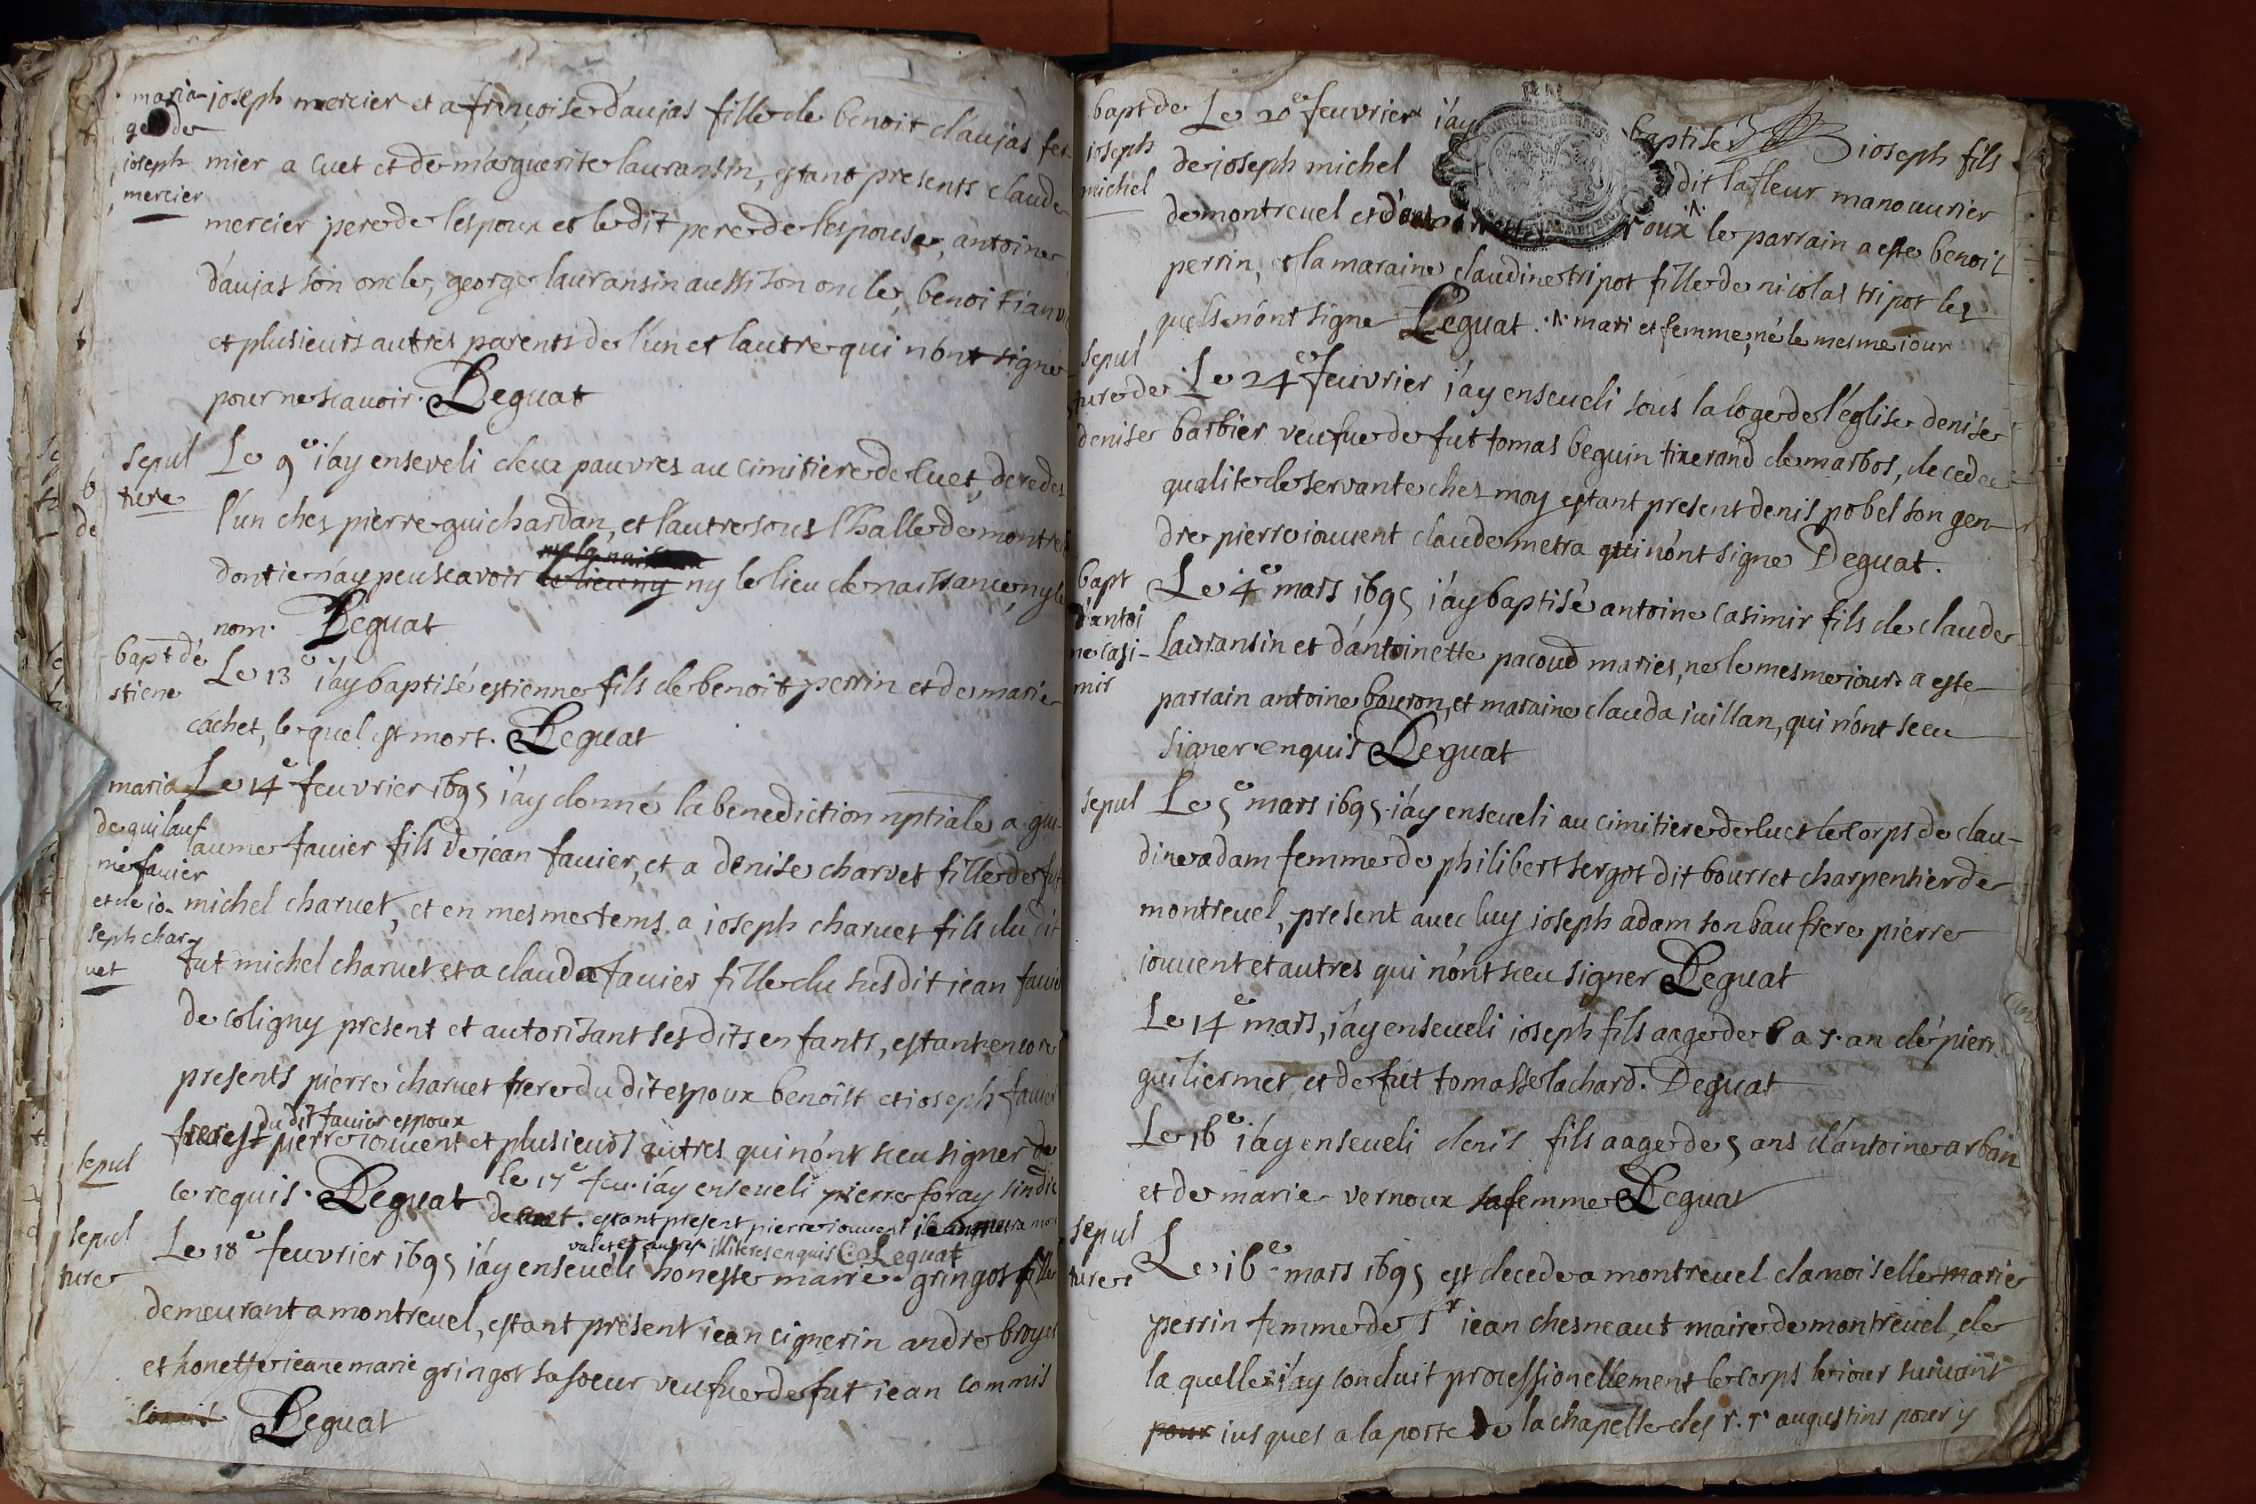 maria- joseph mercier et a françoise daujas fille de benoit daujas fer-
ge de
joseph mier a cuet et de marguerite lauransin, estant presents claude
mercier
mercier pere de lespoux et le dit pere de lespouse, antoine
daujas son oncle, george lauransin aussi son oncle, benoit
et plusieurs autres parents de l'un et lautre qui n'ont signe
pour ne scavoir. Deguat
sepul Le 9e i'ay enseveli deux pauvres au cimitiere de cuet,
ture l'un chez pierre guichardan, et lautre sous l'halle de
dont ie n'ay peu scavoir ny le lieu de naissance, ny le
nom. Deguat
bapt de Le 13e i'ay baptisé estienne fils de benoit perrin et de marie
stiene cachet, le quel est mort. Deguat
maria Le 14e feuvrier 1695 i'ay donné la benediction nptiale a gui-
de guilau laume fauier fils de jean fauier, et a denise charvet fille de fut
me fauier
et de io- michel charuet, et en mesme tems a joseph charuet fils du dit
seph char
uet fut michel charuet et a clauda fauier fille du susdit jean
de coligny present et autorisant ses dits enfants, estant encore
presents pierre charuet frere du dit espoux benoist et joseph fauier
du dit fauier espoux
freres pierre iouuent et plusieurs autres qui n'ont sceu signer de
sepul le 17e feu. i'ay enseueli pierre foray sindic
ce requis. Deguat de cuet. estant present pierre iouuent
valet et autres illiteres enquis Deguat
sepul Le 18e feuvrier 1695 i'ay enseueli honeste marie gringot fille
ture demeurant a montreuel, estant present jean cignerin andre
et honette jeane marie gringot sa soeur veufue de fut jean commis
Deguat
bapt de Le 20e feuvrier i'ay baptise joseph fils
joseph de joseph michel dit lafleur manouurier
michel de montreuel et roux le parrain a este benoit
perrin, et la maraine claudine tripot fille de nicolas tripot les
quels n'ont signe Deguat. mari et femme, né le mesme iour
sepul
ture de Le 24e feuvrier i'ay enseueli sous la loge de l'église denise
denise barbier veufue de fut tomas beguin tixerand de marbos, decedee
qualite de servante chez moy estant present denis pobel son gen-
dre pierre iouuent claude metra qui n'ont signe Deguat.
bapt Le 4e mars 1695 i'ay baptisé antoine casimir fils de claude
d'antoi
ne casi- lauransin et d'antoinette pacoud maries, ne le mesme iour. a este
mir parrain antoine bouron, et maraine clauda iuillan, qui n'ont sceu
signer. enquis Deguat
sepul Le 5e mars 1695. i'ay enseueli au cimitiere de cuet le corps de clau-
dine adam femme de philibert sergot dit bourret charpentier de
montreuel, present avec luy joseph adam son baufrere pierre
iouuent et autres qui n'ont sceu signer Deguat
Le 14e mars, i'ay enseueli joseph fils aage de a 7. an de
guiliermet et de fut tomasse lachard. Deguat
Le 16e i'ay enseueli denis fils aage de 5 ans d'antoine arban
et de marie vernoux sa femme Deguat
sepul
ture Le 16e mars 1695 est decede a montreuel damoiselle marie
perrin femme de sr jean chesneaut maire de montreuel, de
la quelle i'ay conduit processionellement le corps le iour suivant
pour iusques a la porte de la chapelle des r. r augustins pour y